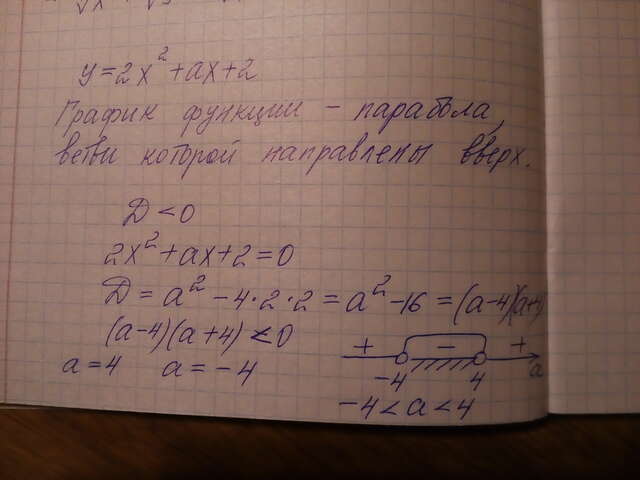 y=2x²+ax+2
График функции – парабола,
ветви которой направлены вверх.
D<0
2x²+ax+2=0
D=a²-4·2·2=a²-16=(a-4)(a+4)
(a-4)(a+4)<0
a=4 a=-4
+ - +
-4 4 a
-4<a<4